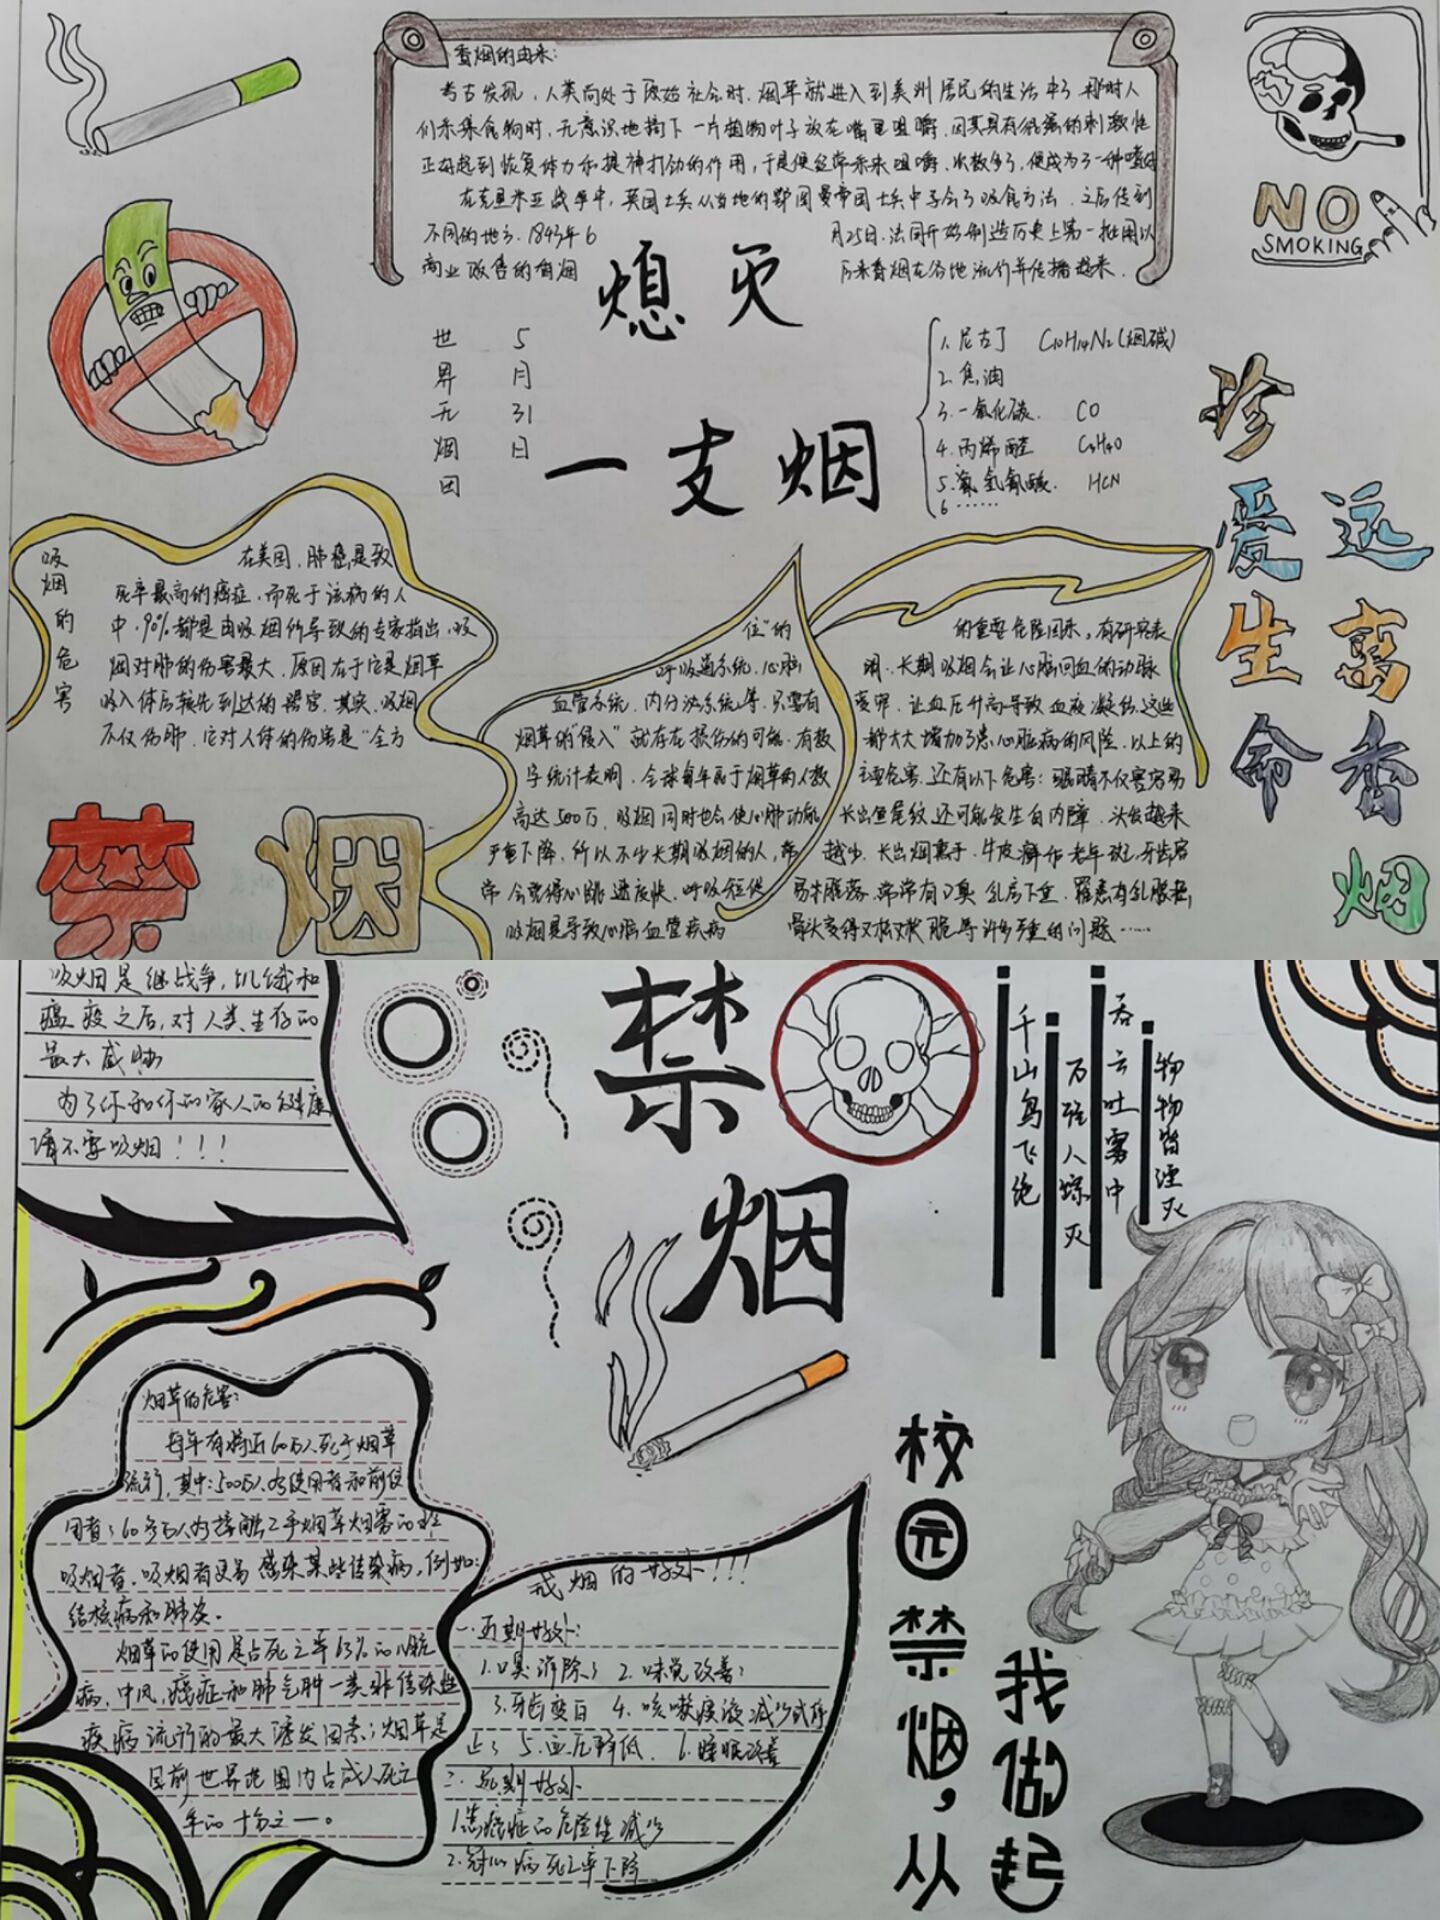 香烟的由来:
考古发现,人类尚处于原始社会时,烟草就进入到美洲居民的生活中了,那时人
们采集食物时,无意识地摘下一片植物叶子放在嘴里咀嚼,因其具有很强的刺激性
正好起到恢复体力和提神打劲的作用,于是便经常采来咀嚼,次数多了,便成为了一种嗜好
在克里米亚战争中,英国士兵从当地的鄂图曼帝国士兵中学会了吸食方法,之后传到
不同的地方.1843年6月25日,法国开始制造历史上第一批用以
商业贩售的
香烟在各地流行并传播起来.
NO
SMOKING
熄灭
一支烟
世界无烟日
5月31日
1.尼古丁 C10H14N2(烟碱)
2.焦油
3.一氧化碳. CO
4.丙烯醛 C3H4O
5.氰氢氰酸. HCN
6......
珍爱生命
远离香烟
吸烟的危害
在美国,肺癌是致
死率最高的癌症,而死于该病的人
中,90%都是由吸烟所导致的专家指出,吸
烟对肺的伤害最大,原因在于它是烟草
吸入体后较先到达的器官.其实,吸烟
不仅伤肺,它对人体的伤害是“全方
位”的
呼吸道系统、心脑
血管系统、内分泌系统等,只需有
烟草的“侵入”就存在损伤的可能.有数
字统计表明,全球每年死于烟草的人数
高达500万,吸烟同时也会使心肺功能
严重下降,所以不少长期吸烟的人,常
常会觉得心跳速度快、呼吸短促
吸烟是导致心脑血管疾病
的重要危险因素,有研究表
明,长期吸烟会让心脑回血的动脉
变窄,让血压升高导致血液凝结,这些
都大大增加了患心脏病的风险,以上的
主要危害.还有以下危害:眼睛不仅害容易
长出鱼尾纹,还可能发生白内障.头发越来
越少.长出烟熏牙,牛皮癣和老年斑,牙齿容
易半脱落,常常有口臭
骨头变得又松又软脆等许多严重的问题......
禁烟
吸烟是继战争,饥饿和
瘟疫之后,对人类生存的
最大威胁
为了你和你的家人的健康
请不要吸烟!!!
禁烟
千山鸟飞绝
万径人踪灭
吞云吐雾中
物物皆湮灭
烟草的危害:
每年有将近60万人死于烟草
流行,其中:500万人为使用者和前使
用者;60多万人为接触二手烟草烟雾的非
吸烟者.吸烟者更易感染某些传染病,例如:
结核病和肺炎.
烟草的使用是占死亡率63%的心脏
病,中风,癌症和肺气肿一类非传染性
疾病流行的最大诱发因素;烟草是
目前世界范围内占成人死亡
率的十分之一。
戒烟的好处!!!
一.近期好处:
1.口臭消除; 2.味觉改善;
3.牙齿变白 4.咳嗽痰液减少或停
止; 5.血压降低. 6.睡眠改善
二.远期好处
1.患癌症的危险性减少
2.冠心病死亡率下降
校园禁烟,从
我做起